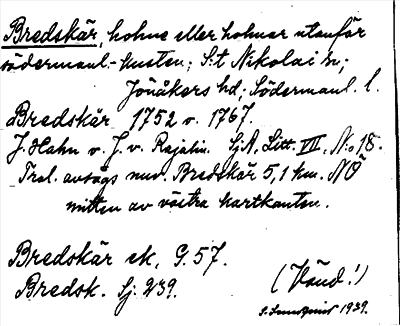 Bredskär, holme eller holmar utanför
södermanl.-kusten; S:t Nikolai sn;
Jönåkers hd; Södermanl. l.
Bredskär 1752 o. 1767.
J. Hahn o. J. v. Rajalin. Sj.A. Litt. VII, N:o 18.
Trol. avsågs nuv. Bredskär 5,1 km. NÖ
mitten av västra kartkanten.
Bredskär ek. G. 57.
Bredsk. Sj. 239.
(Vänd!)
1939.